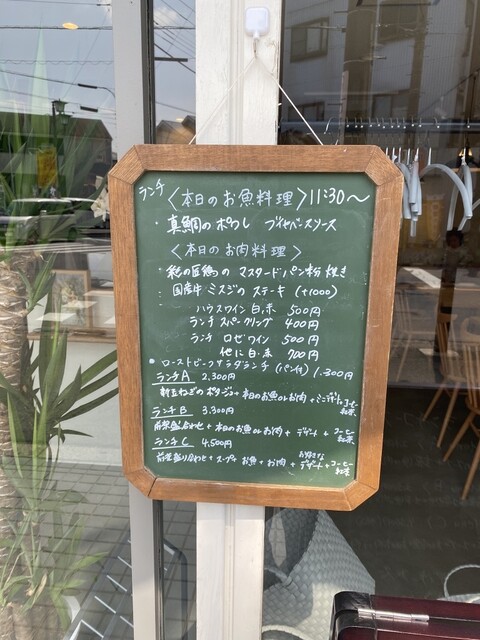 ランチ 〈本日のお魚料理〉11:30〜
・真鯛のポワレ ブイヤベースソース
〈本日のお肉料理〉
・彩の国鶏の マスタードパン粉焼き
国産牛 ミスジのステーキ (+1000)
ハウスワイン 白.赤 500円
ランチスパークリング 400円
ランチ ロゼワイン 500円
他に白.赤 700円
●ローストビーフサラダランチ (パン付) 1.300円
ランチA 2,300円
新玉ねぎのポタージュ+本日のお魚orお肉+ミニデザート+コーヒー紅茶
ランチB 3,300円
前菜盛合わせ+本日のお魚orお肉+デザート+コーヒー紅茶
ランチC 4,500円
前菜盛り合わせ+スープ+お魚+お肉+お好きなデザート+コーヒー紅茶